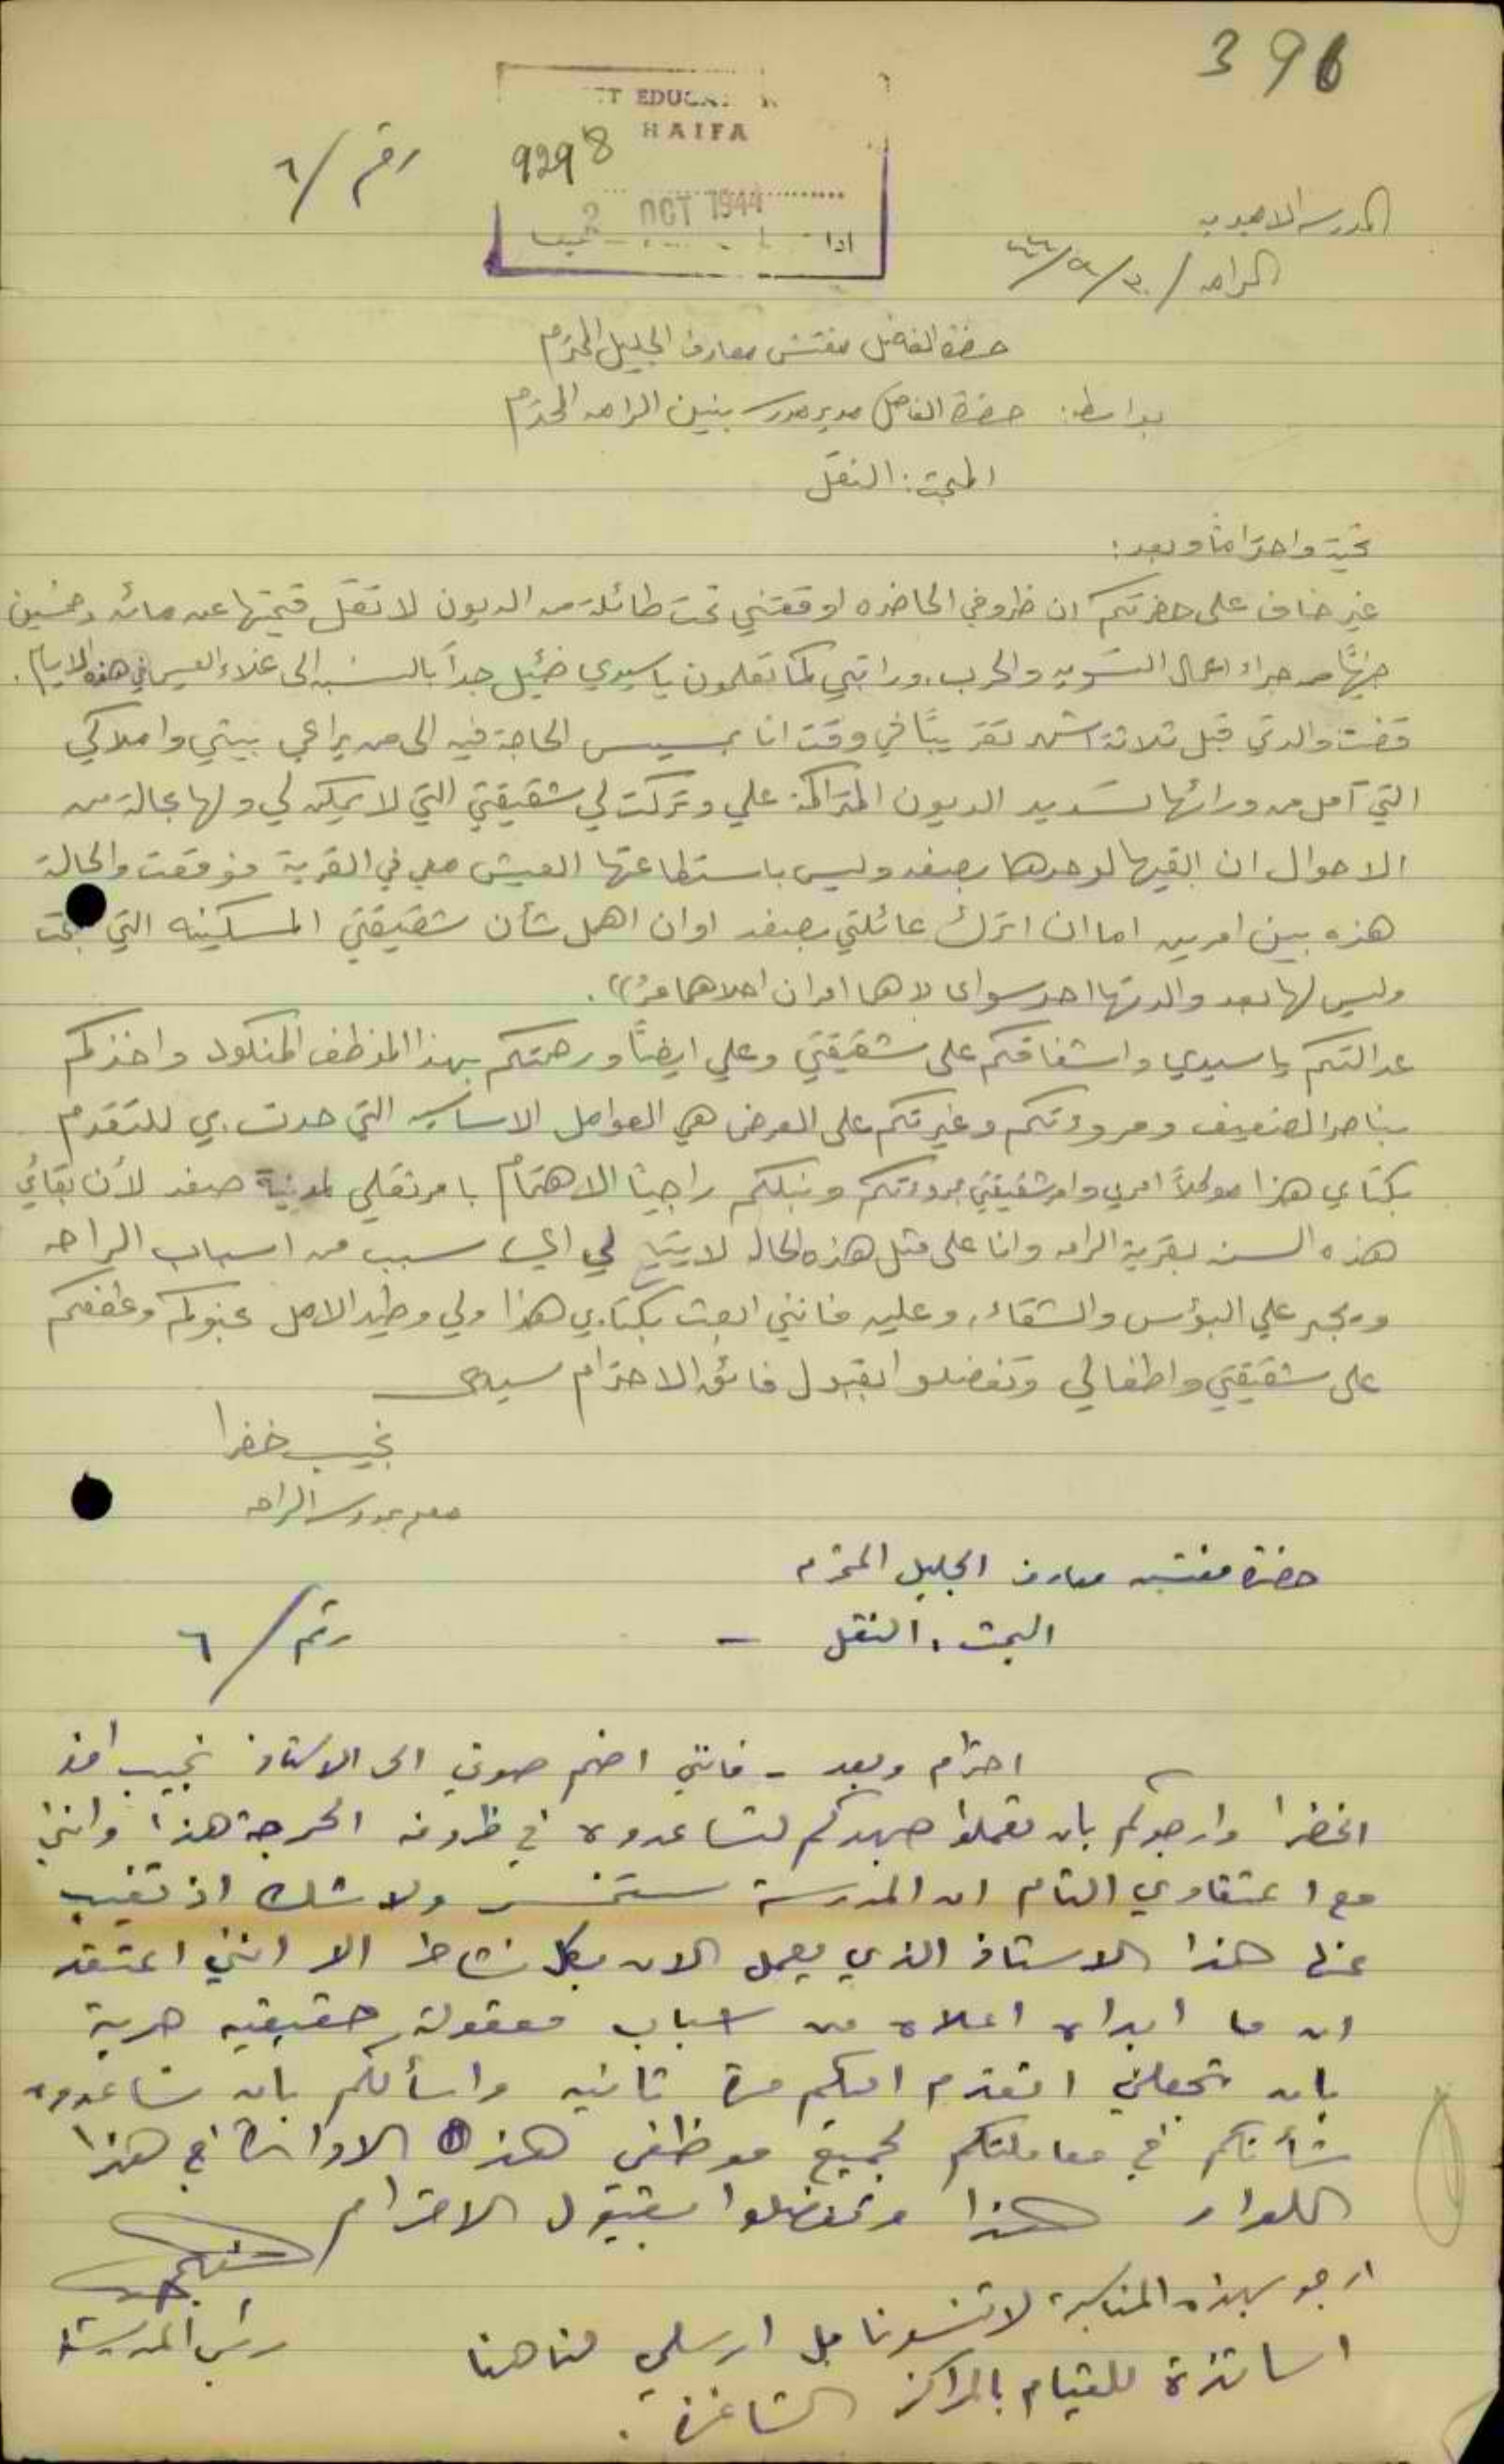 396
EDUCA
HAIFA
9298
2 OCT 1944
رقم / ٦
المدرسه الاميريه
الرامه / ٣٠/٩/٤٤
حضرة الفاضل مفتش معارف الجليل المحترم
بواسطة: حضرة الفاضل مدير مدرسة بنين الرامه المحترم
المبحث: النقل
تحية واحتراماً وبعد:
غير خاف على حضرتكم ان ظروفي الحاضره اوقعتني تحت طائلة من الديون لا تقل قيمتها عن مائه وخمسين
جنيهاً من جراء اعمال التسويه والحرب. وراتبي كما تعلمون يا سيدي ضئيل جداً بالنسبه الى غلاء العيش في هذه الايام.
قضت والدتي قبل ثلاثة اشهر تقريباً في وقت انا بمسيس الحاجة فيه الى من يراعي بيتي واملاكي
التي آمل من ورائها تسديد الديون المتراكمة علي وتركت لي شقيقتي التي لا يمكن لي ولها بحالة من
الاحوال ان ابقيها لوحدها بصفد وليس باستطاعتها العيش معي في القرية فوقعت والحالة
هذه بين امرين اما ان اترك عائلتي بصفد او ان اهمل شأن شقيقتي المسكينه التي
وليس لها بعد والدتها احد سواي لاهما امران احلاهما مرّ.
عدالتكم يا سيدي واشفاقكم على شقيقتي وعلي ايضاً ورحمتكم بهذا الموظف المنكود واخذكم
بناصر الضعيف ومروءتكم وغيرتكم على العرض هي العوامل الاساسيه التي حدت بي للتقدم
بكتابي هذا موكلاً امري وامر شقيقتي لمروءتكم ونبلكم راجياً الاهتمام بامر نقلي لمدينة صفد لأن بقائي
هذه السنه بقرية الرامه وانا على مثل هذه الحاله لا يتيح لي اي سبب من اسباب الراحه
ويجر علي البؤس والشقاء. وعليه فانني ابعث بكتابي هذا ولي وطيد الامل بنبلكم وعطفكم
على شقيقتي واطفالي وتفضلوا بقبول فائق الاحترام سيدي
نجيب خضرا
معلم بمدرسة الرامه
حضرة مفتش معارف الجليل المحترم
البحث: النقل -
رقم / ٦
احترام وبعد - فانني اضم صوتي الى الاستاذ نجيب افندي
الخضرا وارجوكم بان تعملوا جهدكم لتساعدوه في ظروفه الحرجة هذه وانني
مع اعتقادي التام ان المدرسة ستخسر ولا شك اذ تغيب
عنها هذا الاستاذ الذي يعمل الان بكل نشاط الا انني اعتقد
ان ما ابداه اعلاه من اسباب معقولة حقيقيه حرية
بان تجعلني اتقدم اليكم مرة ثانيه واسألكم بان تساعدوه
شأنكم في معاملتكم لجميع موظفي هذه الادارة في هذا
اللواء هذا وتفضلوا بقبول الاحترام
رئيس المدرسة
ارجو بهذه المناسبة لا تنسونا بل ارسلوا لنا هنا
اساتذة للقيام بالمراكز الشاغرة.